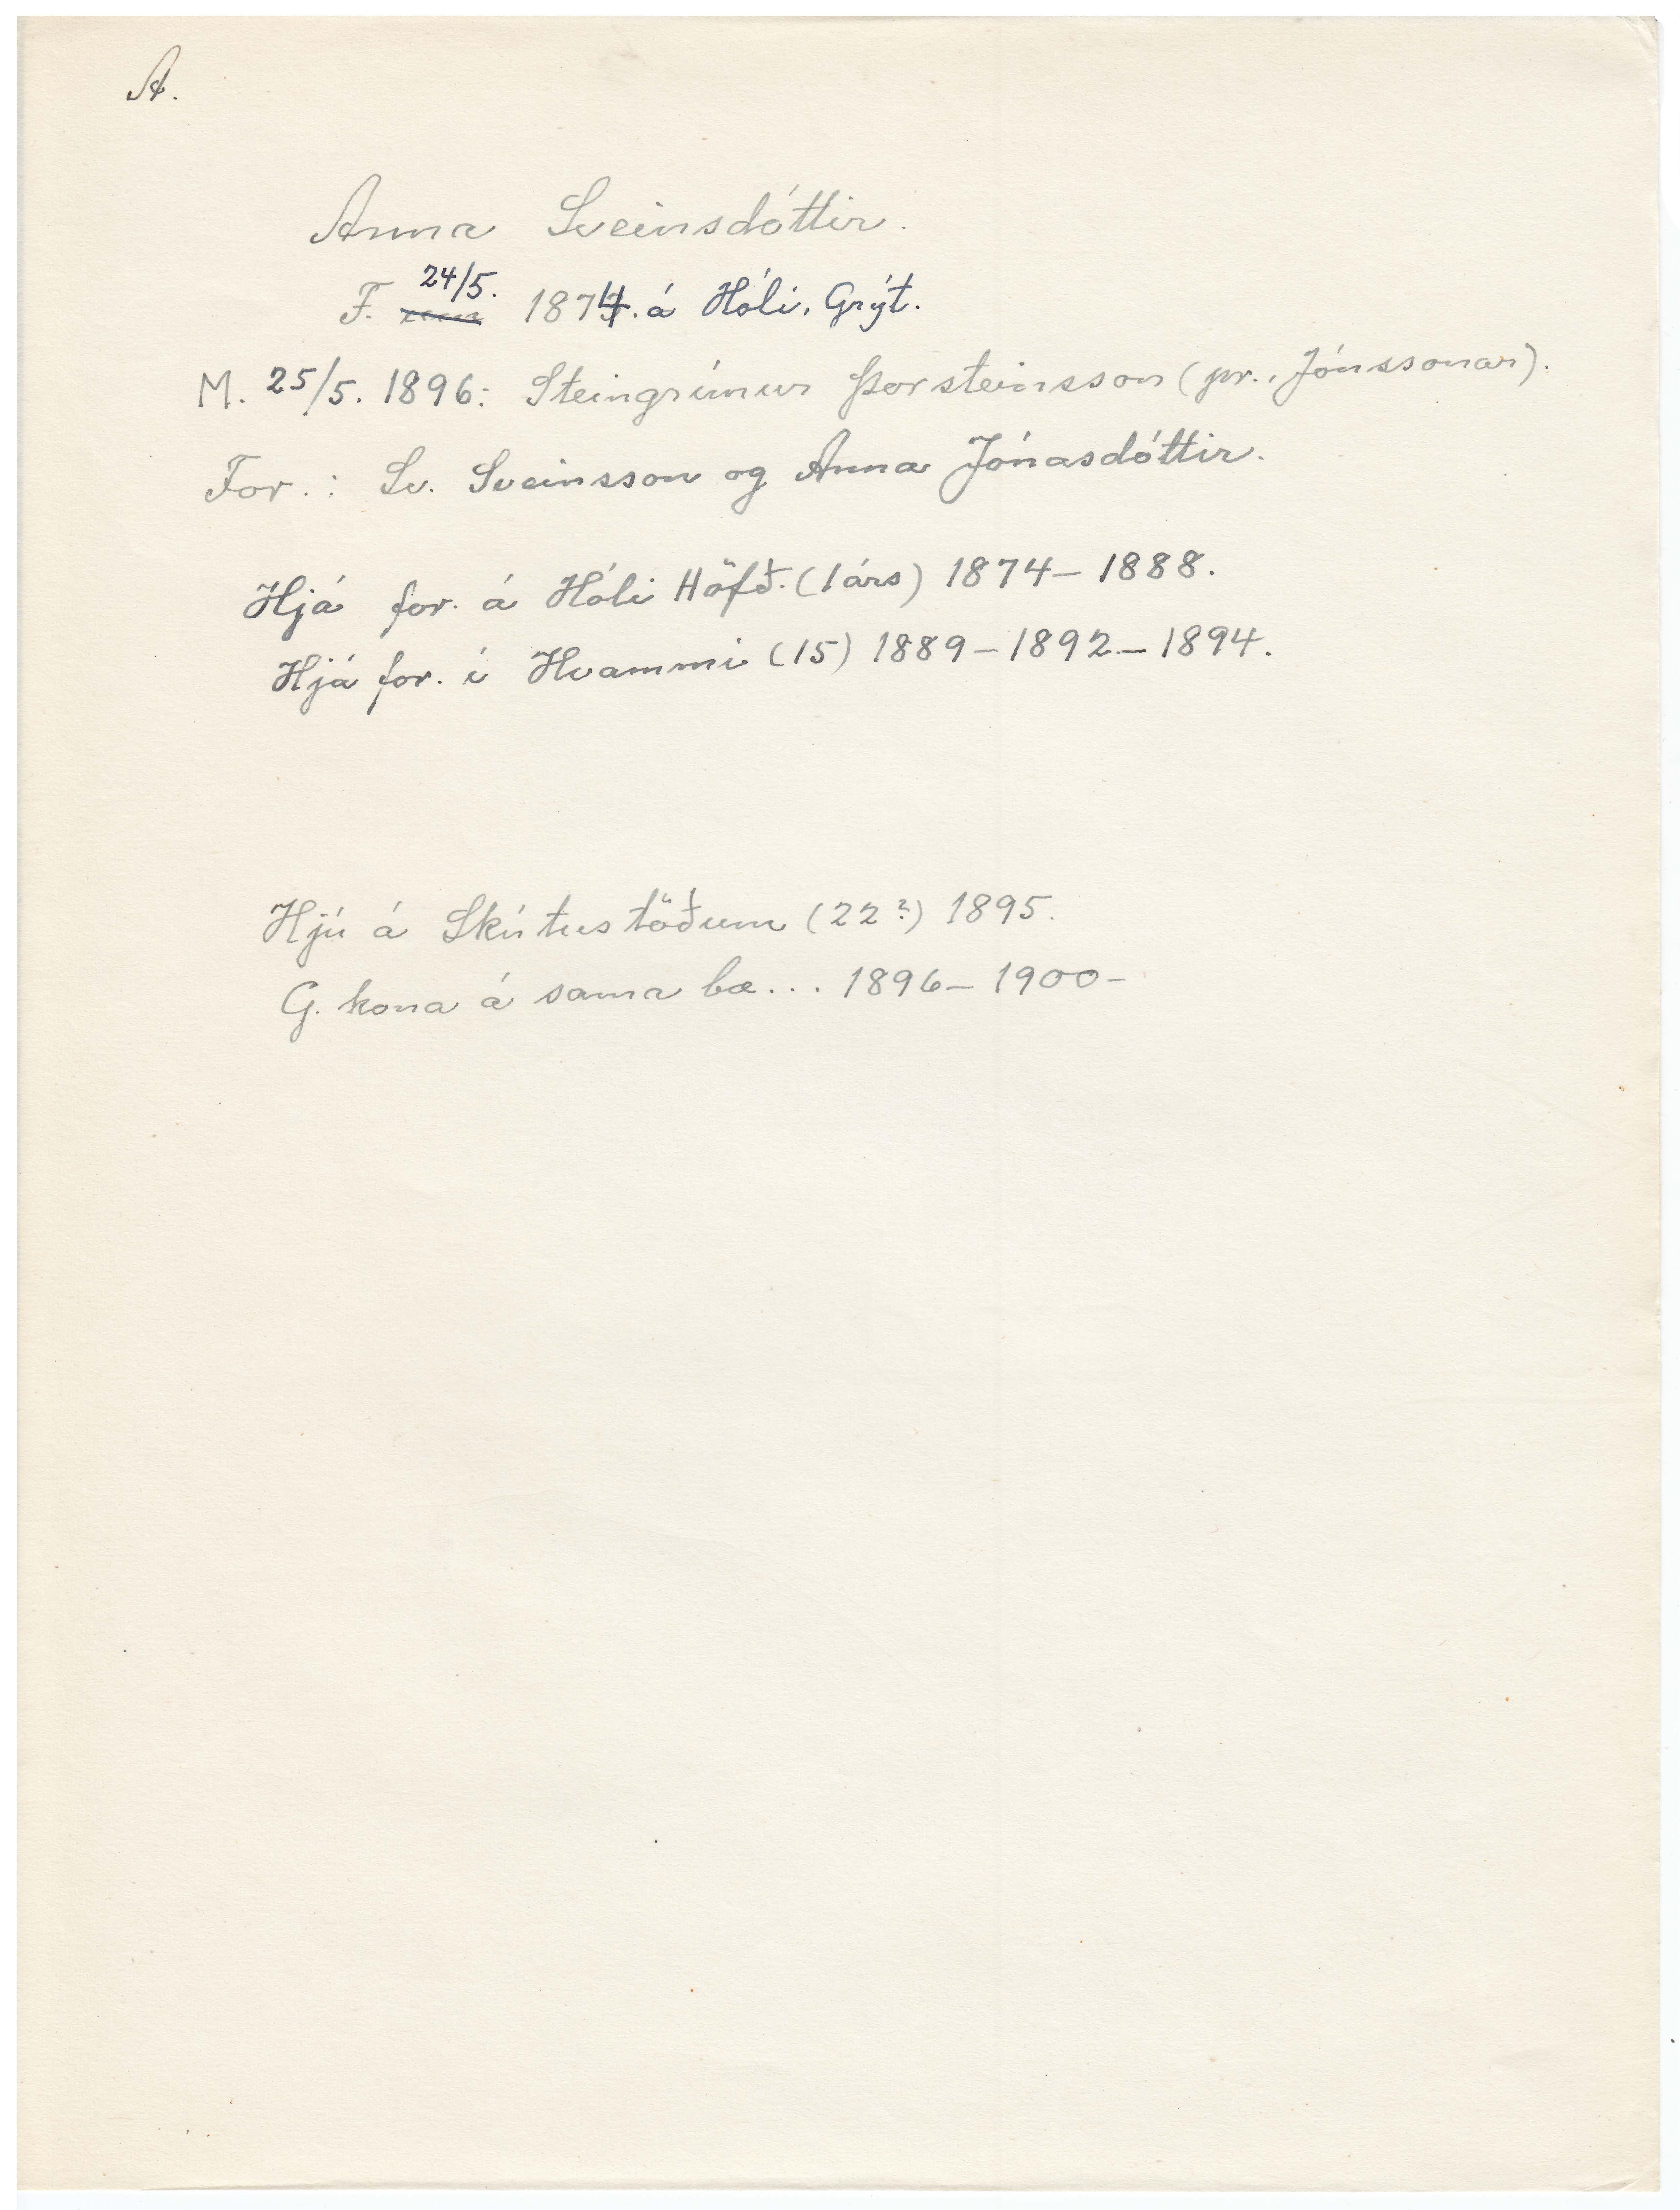 A.
Anna Sveinsdóttir.
F. 24/5. 1874. á Hóli, Grýt.
M. 25/5. 1896: Steingrímur Þorsteinsson (pr., Jónssonar).
For.: Sv. Sveinsson og Anna Jónasdóttir.
Hjá for. á Hóli Höfð. (1 árs) 1874 – 1888.
Hjá for. í Hvammi (15) 1889 – 1892 – 1894.
Hjú á Skútustöðum (22?) 1895.
G. kona á sama bæ... 1896 – 1900 –